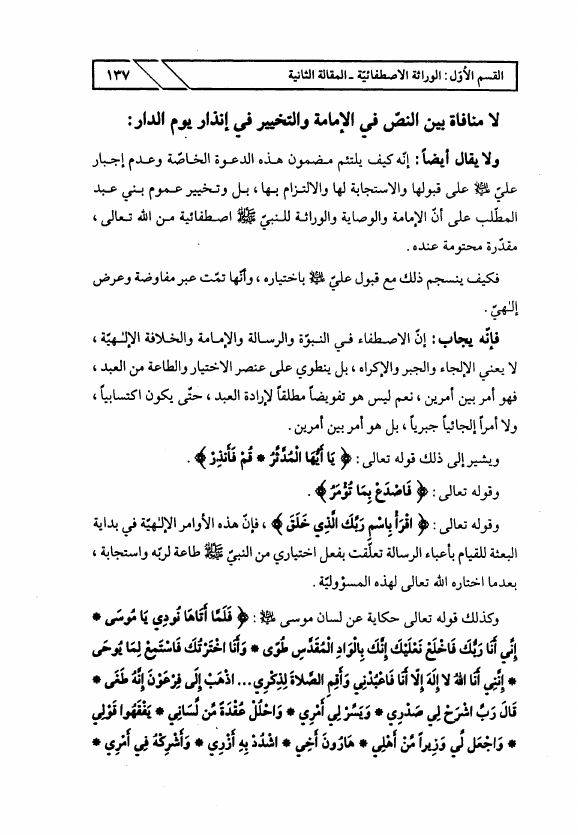 القسم الأوّل: الوراثة الاصطفائيّة ـ المقالة الثانية
١٣٧
لا منافاة بين النصّ في الإمامة والتخيير في إنذار يوم الدار:
ولا يقال أيضاً: إنّه كيف يلتئم مضمون هذه الدعوة الخاصّة وعدم إجبار
عليّ ﷺ على قبولها والاستجابة لها والالتزام بها، بل وتخيير عموم بني عبد
المطّلب على أنّ الإمامة والوصاية والوراثة للنبيّ ﷺ اصطفائية من الله تعالى،
مقدّرة محتومة عنده.
فكيف ينسجم ذلك مع قبول عليّ ﷺ باختياره، وأنّها تمّت عبر مفاوضة وعرض
إلهيّ.
فإنّه يجاب: إنّ الاصطفاء في النبوّة والرسالة والإمامة والخلافة الإلهيّة،
لا يعني الإلجاء والجبر والإكراه، بل ينطوي على عنصر الاختيار والطاعة من العبد،
فهو أمر بين أمرين، نعم ليس هو تفويضاً مطلقاً لإرادة العبد، حتّى يكون اكتسابياً،
ولا أمراً إلجائياً جبرياً، بل هو أمر بين أمرين.
ويشير إلى ذلك قوله تعالى: ﴿ يَا أَيُّهَا الْمُدَّثِّرُ * قُمْ فَأَنذِرْ ﴾.
وقوله تعالى: ﴿ فَاصْدَعْ بِمَا تُؤْمَرُ ﴾.
وقوله تعالى: ﴿ اقْرَأْ بِاسْمِ رَبِّكَ الَّذِي خَلَقَ ﴾، فإنّ هذه الأوامر الإلهيّة في بداية
البعثة للقيام بأعباء الرسالة تعلّقت بفعل اختياري من النبيّ ﷺ طاعة لربّه واستجابة،
بعدما اختاره الله تعالى لهذه المسؤوليّة.
وكذلك قوله تعالى حكاية عن لسان موسى ﷺ: ﴿ فَلَمَّا أَتَاهَا نُودِي يَا مُوسَى *
إِنِّي أَنَا رَبُّكَ فَاخْلَعْ نَعْلَيْكَ إِنَّكَ بِالْوَادِ الْمُقَدَّسِ طُوًى * وَأَنَا اخْتَرْتُكَ فَاسْتَمِعْ لِمَا يُوحَى
* إِنَّنِي أَنَا اللهُ لا إِلَهَ إِلاَّ أَنَا فَاعْبُدْنِي وَأَقِمِ الصَّلاةَ لِذِكْرِي... اذْهَبْ إِلَى فِرْعَوْنَ إِنَّهُ طَغَى *
قَالَ رَبِّ اشْرَحْ لِي صَدْرِي * وَيَسِّرْ لِي أَمْرِي * وَاحْلُلْ عُقْدَةً مِّن لِّسَانِي * يَفْقَهُوا قَوْلِي
* وَاجْعَل لِّي وَزِيراً مِّنْ أَهْلِي * هَارُونَ أَخِي * اشْدُدْ بِهِ أَزْرِي * وَأَشْرِكْهُ فِي أَمْرِي *